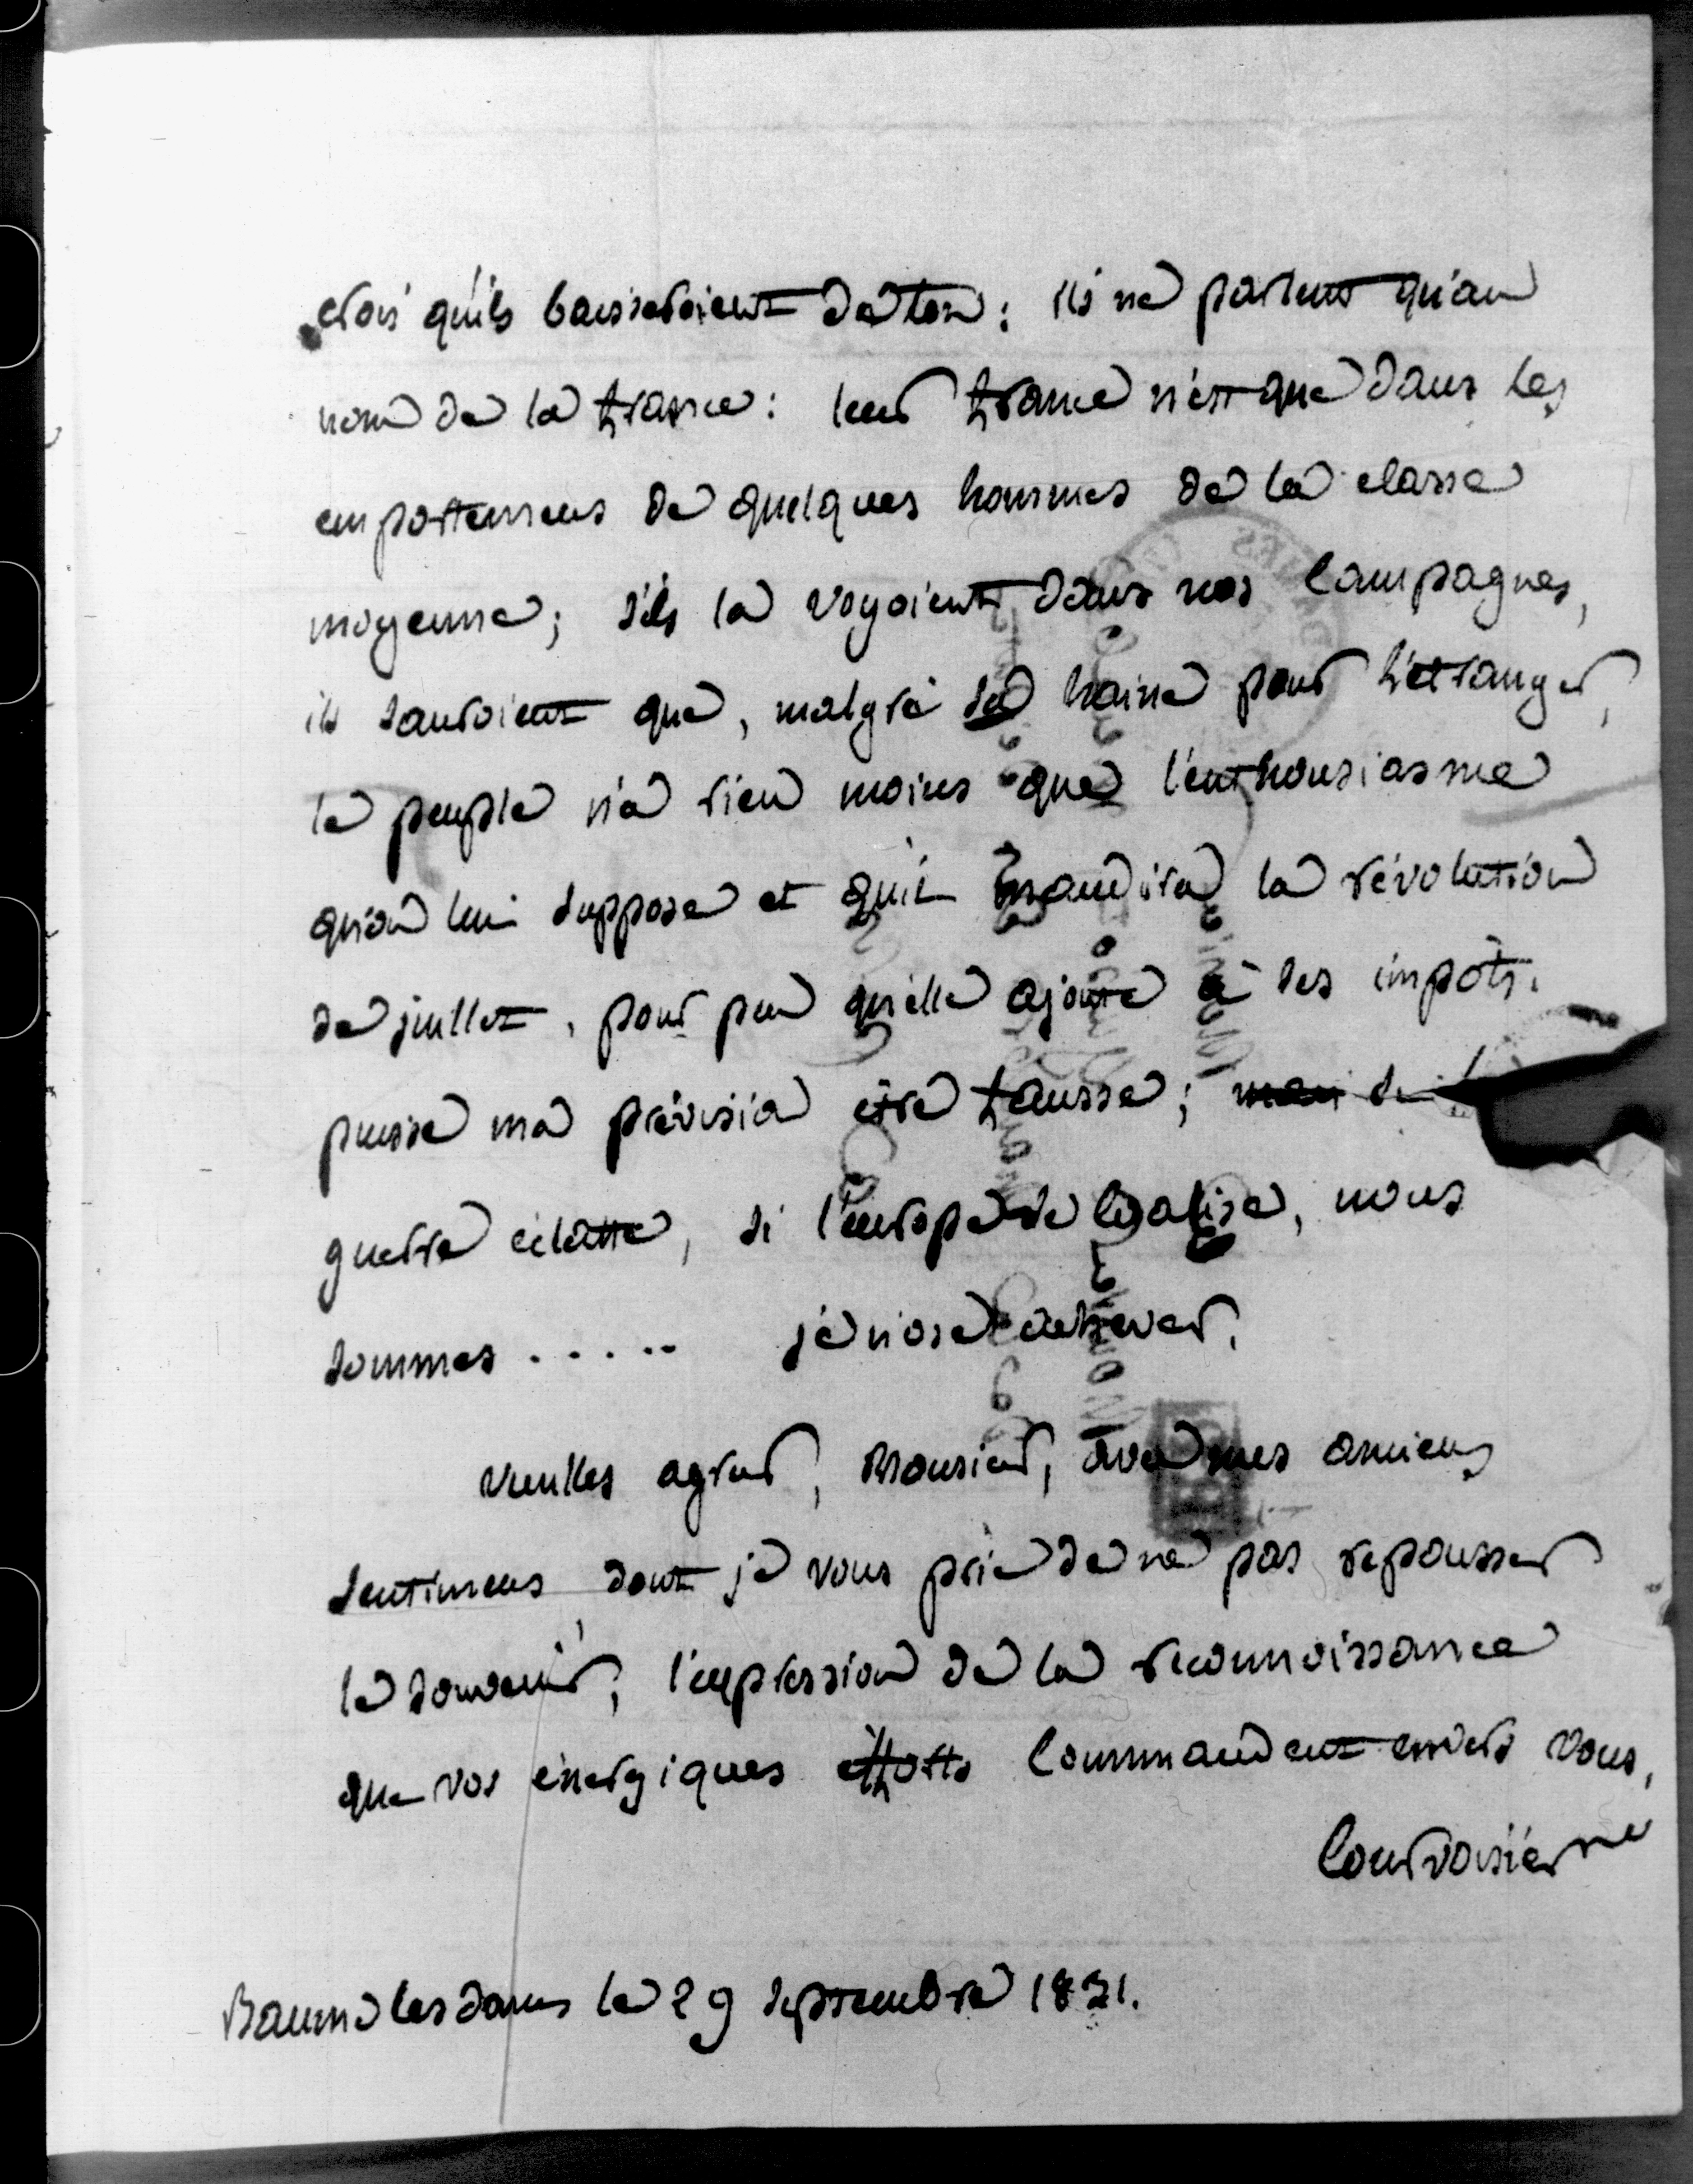 crois qu'ils baisseroient de ton : ils ne parlent qu'au
nom de la france : leur france n'est que dans les
emportemens de quelques hommes de la classe
moyenne; s'ils la voyoient dans nos campagnes,
ils sauroient que, malgré sa haine pour l'étranger,
le peuple n'a rien moins que l'enthousiasme
qu'on lui suppose et qu'il maudira la révolution
de juillet, pour peu qu'elle ajoute à ses impôts.
puisse ma prévision être fausse; mais si
guerre éclatte, si l'europe se coalise, nous
sommes ..... je n'ose achever.
veuilles agréer, Monsieur, avec mes anciens
sentimens dont je vous prie de ne pas repousser
le souvenir, l'expression de la reconnoissance
que vos énergiques efforts commandent envers vous.
Courvoisier
Baume les dames le 29 septembre 1831.